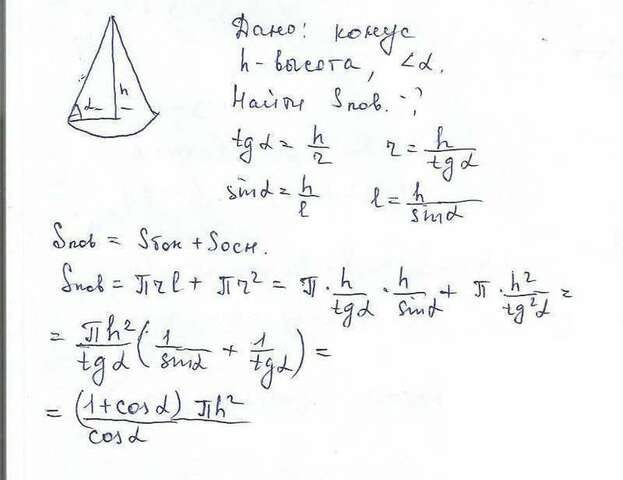 Дано: конус
h - высота, ∠α.
Найти Sпов. - ?
α h
tgα = h/r r = h/tgα
sinα = h/l l = h/sinα
Sпов = Sбок + Sосн.
Sпов = πrl + πr² = π · h/tgα · h/sinα + π · h²/tg²α =
= πh²/tgα (1/sinα + 1/tgα) =
= (1+cosα) πh²/cosα